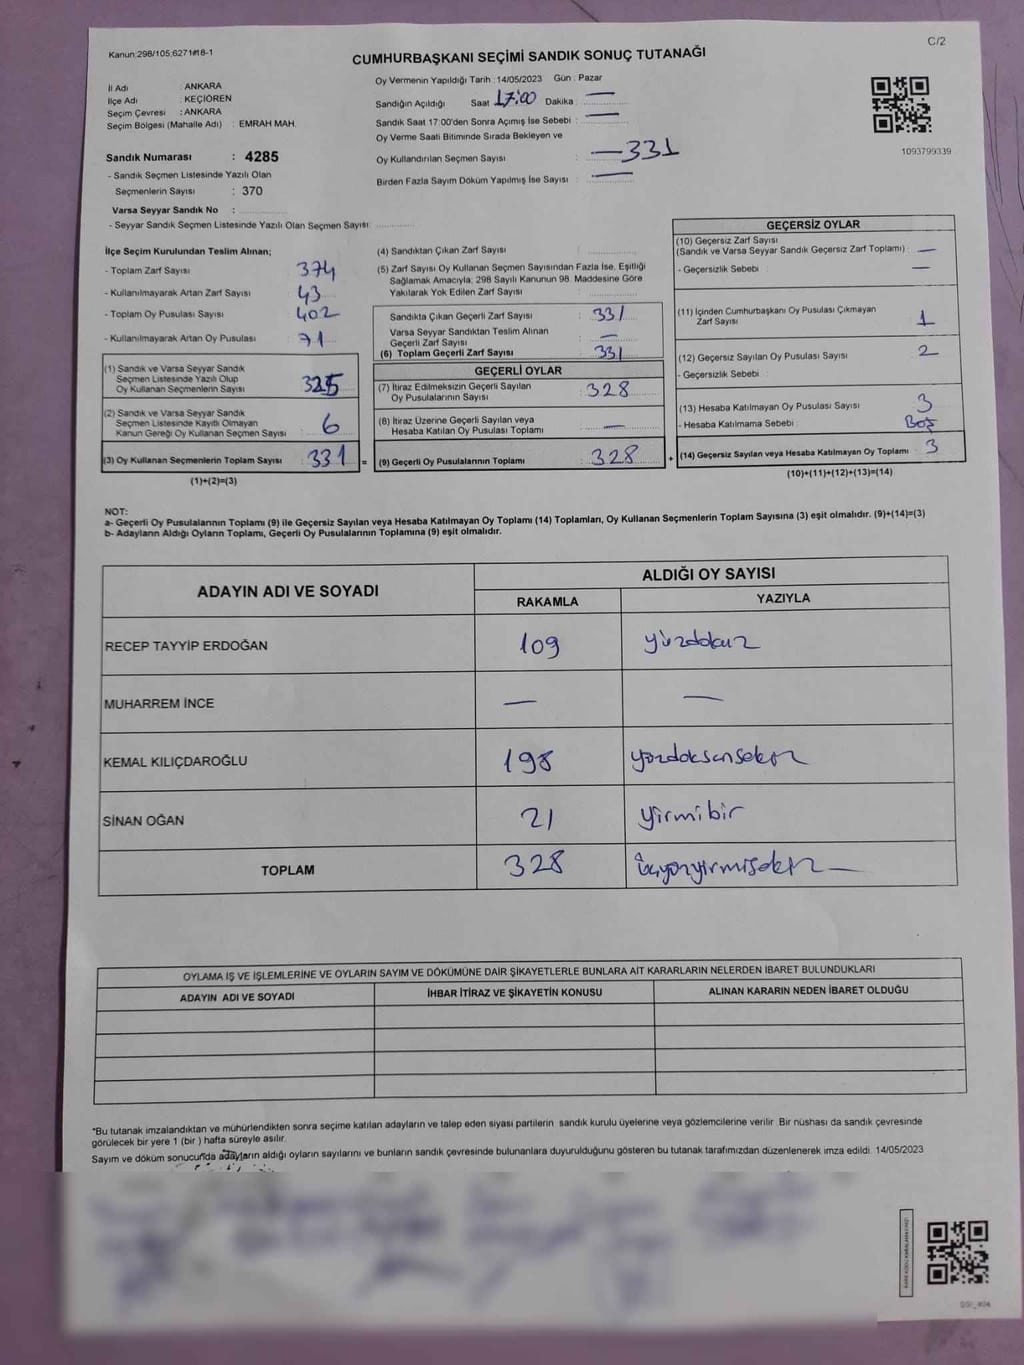 Kanun:298/105,6271#18-1
C/2
CUMHURBAŞKANI SEÇİMİ SANDIK SONUÇ TUTANAĞI
İl Adı : ANKARA
İlçe Adı : KEÇİÖREN
Seçim Çevresi : ANKARA
Seçim Bölgesi (Mahalle Adı) : EMRAH MAH.
Sandık Numarası : 4285
- Sandık Seçmen Listesinde Yazılı Olan
Seçmenlerin Sayısı : 370
Varsa Seyyar Sandık No :
- Seyyar Sandık Seçmen Listesinde Yazılı Olan Seçmen Sayısı:
Oy Vermenin Yapıldığı Tarih : 14/05/2023 Gün : Pazar
Sandığın Açıldığı Saat 17:00 Dakika : —
Sandık Saat 17:00'den Sonra Açımış İse Sebebi : —
Oy Verme Saati Bitiminde Sırada Bekleyen ve
Oy Kullandırılan Seçmen Sayısı : —331
Birden Fazla Sayım Döküm Yapılmış İse Sayısı : —
1093799339
İlçe Seçim Kurulundan Teslim Alınan;
- Toplam Zarf Sayısı : 374
- Kullanılmayarak Artan Zarf Sayısı : 43
- Toplam Oy Pusulası Sayısı : 402
- Kullanılmayarak Artan Oy Pusulası : 71
(1) Sandık ve Varsa Seyyar Sandık
Seçmen Listesinde Yazılı Olup
Oy Kullanan Seçmenlerin Sayısı : 325
(2) Sandık ve Varsa Seyyar Sandık
Seçmen Listesinde Kayıtlı Olmayan
Kanun Gereği Oy Kullanan Seçmen Sayısı : 6
(3) Oy Kullanan Seçmenlerin Toplam Sayısı : 331 =
(1)+(2)=(3)
(4) Sandıktan Çıkan Zarf Sayısı :
(5) Zarf Sayısı Oy Kullanan Seçmen Sayısından Fazla İse, Eşitliği
Sağlamak Amacıyla; 298 Sayılı Kanunun 98. Maddesine Göre
Yakılarak Yok Edilen Zarf Sayısı :
Sandıkta Çıkan Geçerli Zarf Sayısı : 331
Varsa Seyyar Sandıktan Teslim Alınan
Geçerli Zarf Sayısı : —
(6) Toplam Geçerli Zarf Sayısı : 331
GEÇERLİ OYLAR
(7) İtiraz Edilmeksizin Geçerli Sayılan
Oy Pusulalarının Sayısı : 328
(8) İtiraz Üzerine Geçerli Sayılan veya
Hesaba Katılan Oy Pusulası Toplamı : —
(9) Geçerli Oy Pusulalarının Toplamı : 328 +
GEÇERSİZ OYLAR
(10) Geçersiz Zarf Sayısı
(Sandık ve Varsa Seyyar Sandık Geçersiz Zarf Toplamı) : —
- Geçersizlik Sebebi : —
(11) İçinden Cumhurbaşkanı Oy Pusulası Çıkmayan
Zarf Sayısı : 1
(12) Geçersiz Sayılan Oy Pusulası Sayısı : 2
- Geçersizlik Sebebi :
(13) Hesaba Katılmayan Oy Pusulası Sayısı : 3
- Hesaba Katılmama Sebebi : Boş
(14) Geçersiz Sayılan veya Hesaba Katılmayan Oy Toplamı : 3
(10)+(11)+(12)+(13)=(14)
NOT:
a- Geçerli Oy Pusulalarının Toplamı (9) ile Geçersiz Sayılan veya Hesaba Katılmayan Oy Toplamı (14) Toplamları, Oy Kullanan Seçmenlerin Toplam Sayısına (3) eşit olmalıdır. (9)+(14)=(3)
b- Adayların Aldığı Oyların Toplamı, Geçerli Oy Pusulalarının Toplamına (9) eşit olmalıdır.
ADAYIN ADI VE SOYADI
ALDIĞI OY SAYISI
RAKAMLA YAZIYLA
RECEP TAYYİP ERDOĞAN 109 yüzdokuz
MUHARREM İNCE — —
KEMAL KILIÇDAROĞLU 198 yüzdoksansekiz
SİNAN OĞAN 21 yirmibir
TOPLAM 328 üçyüzyirmisekiz —
OYLAMA İŞ VE İŞLEMLERİNE VE OYLARIN SAYIM VE DÖKÜMÜNE DAİR ŞİKAYETLERLE BUNLARA AİT KARARLARIN NELERDEN İBARET BULUNDUKLARI
ADAYIN ADI VE SOYADI İHBAR İTİRAZ VE ŞİKAYETİN KONUSU ALINAN KARARIN NEDEN İBARET OLDUĞU
*Bu tutanak imzalandıktan ve mühürlendikten sonra seçime katılan adayların ve talep eden siyasi partilerin sandık kurulu üyelerine veya gözlemcilerine verilir. Bir nüshası da sandık çevresinde
görülecek bir yere 1 (bir ) hafta süreyle asılır.
Sayım ve döküm sonucunda adayların aldığı oyların sayılarını ve bunların sandık çevresinde bulunanlara duyurulduğunu gösteren bu tutanak tarafımızdan düzenlenerek imza edildi. 14/05/2023